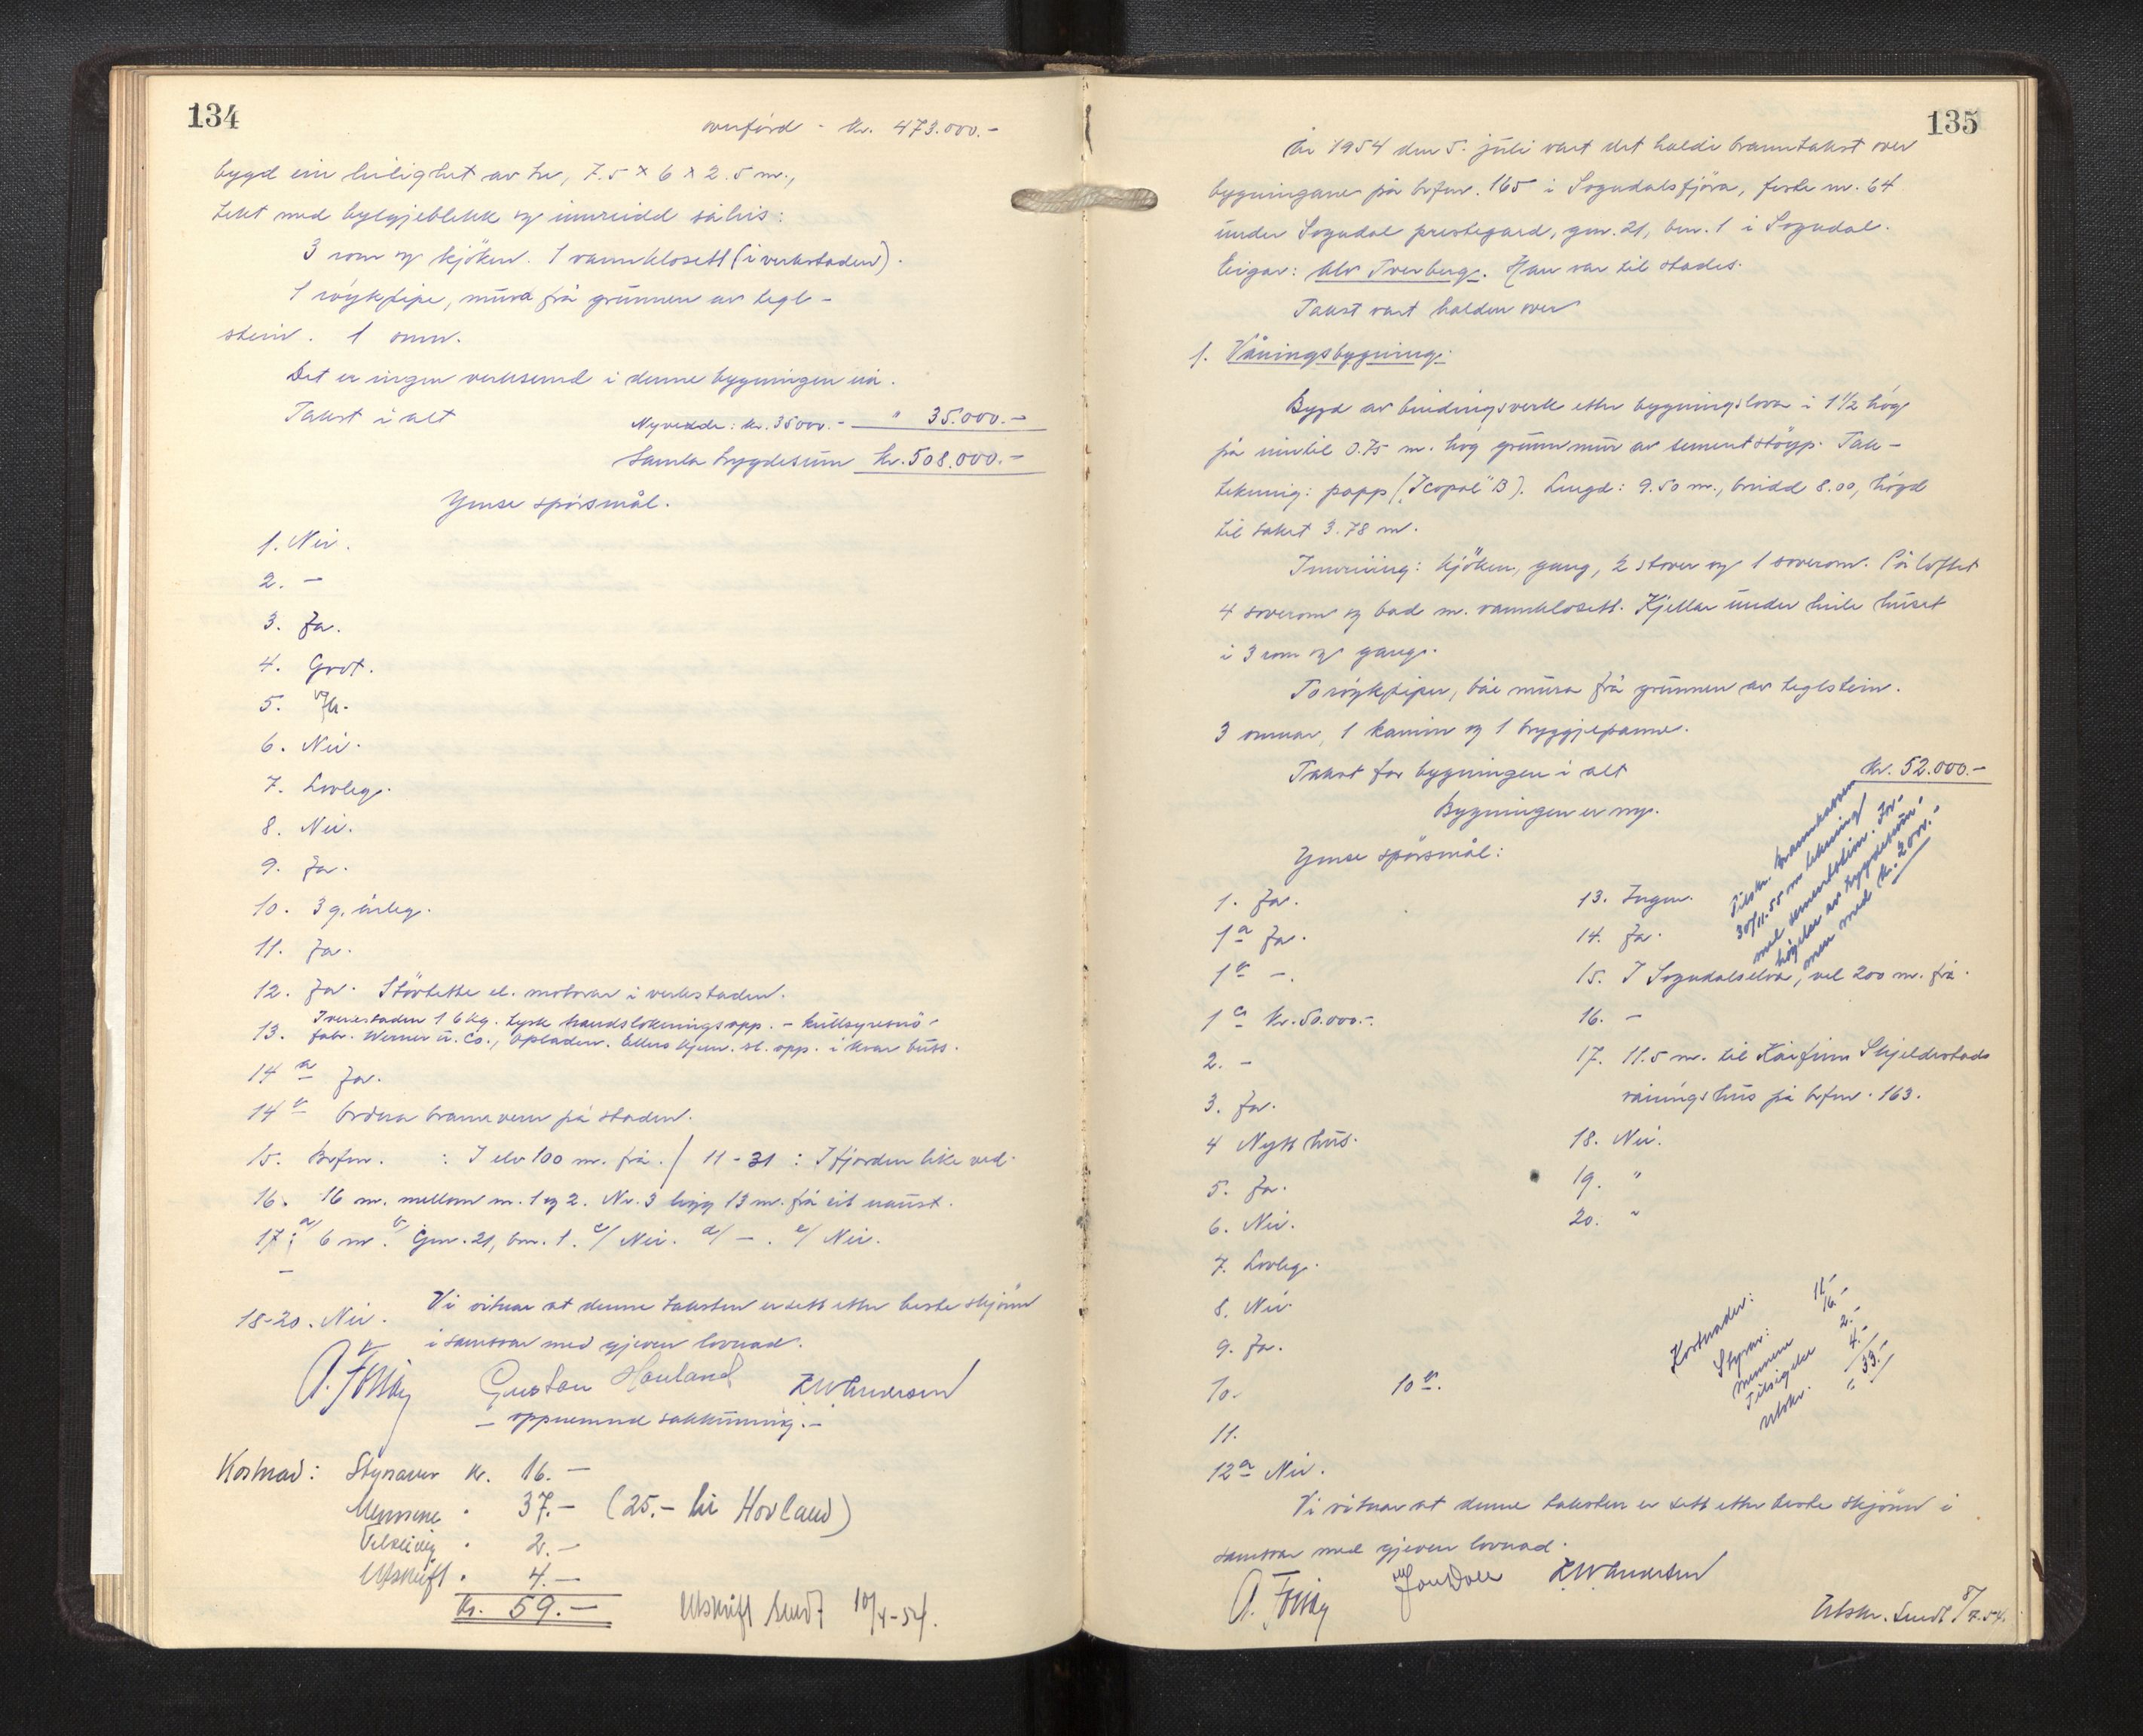 134
overförd - kr. 473.000.-
bygd ein leilighet av tre, 7.5 x 6 x 2.5 m.,
tekt med bylgjeblekk og innreidd såleis:
3 rom og kjöken. 1 vannklosett (i verkstaden).
1 röykpipe, mura frå grunnen av tegl-
stein. 1 omn.
Det er ingen verksemd i denne bygningen no.
Takst i alt Nyverde: kr. 35000.- " 35.000.-
Samla trygdesum kr. 508.000.-
Ymse spörsmål.
1. Nei.
2. -
3. Ja.
4. Godt.
5. Ja.
6. Nei.
7. Lovleg.
8. Nei.
9. Ja.
10. 3 g. årleg.
11. Ja.
12. Ja. Stövtette el. motorar i verkstaden.
13. I verkstaden 1 6 kg. tysk handslokningsapp. - kullsyresnö -
fabr. Werner u. Co., Opladen. Ellers kjem. sl. app. i kvar buss.
14 a Ja.
14 b Ordna brannvern på staden.
15. Brfnr. : I elv 100 m. frå. / 11-31 : I fjorden like ved.
16. 16 m. mellom nr. 1 og 2. Nr. 3 ligg 13 m. frå eit naust.
17: a/ 6 m. b/ Gnr. 21, bnr. 1. c/ Nei. d/ -. e/ Nei.
-
18-20. Nei. Vi vitnar at denne taksten er sett etter beste skjönn
i samsvar med gjeven lovnad.
A. Fossöy Gustav Hovland K.W. Andersen
- oppnemnd sakkunnig. -
Kostnad: Styraren kr. 16.-
Mennene " 37.- (25.- til Hovland)
Tilseiing " 2.-
Utskrift " 4.-
Kr. 59.- Utskrift sendt 10/4-54.
135
År 1954 den 5. juli vart det haldi branntakst over
bygningane på brfnr. 165 i Sogndalsfjöra, feste nr. 64
under Sogndal prestegard, gnr. 21, bnr. 1 i Sogndal.
Eigar: Alv Tverberg. Han var til stades.
Takst vart halden over
1. Våningsbygning:
Bygd av bindingsverk etter bygningslova i 1 1/2 högd
på inntil 0.75 m. hög grunnmur av sementstöyp. Tak-
tekning: papp ("Icopal" B). Lengd: 9.50 m., breidd 8.00, högd
til taket 3.78 m.
Innreiing: kjöken, gang, 2 stover og 1 soverom. På loftet
4 soverom og bad m. vannklosett. Kjellar under heile huset
i 3 rom og gang.
To röykpiper, båe mura frå grunnen av teglstein.
3 omnar, 1 kamin og 1 bryggjepanne.
Takst for bygningen i alt kr. 52.000.-
Bygningen er ny.
Tilskr. brannkassen
30/11.55 om tekning
med sementstein. For-
högelse av trygdesum-
men med kr. 2000.-
Ymse spörsmål:
1. Ja.
1 a Ja.
1 b -.
1 c Kr. 50.000.-.
2. -
3. Ja.
4 Nytt hus.
5. Ja.
6. Nei.
7. Lovleg.
8. Nei.
9. Ja.
10. 10 b.
11.
12 a Nei.
13. Ingen.
14. Ja.
15. I Sogndalselva, vel 200 m. frå.
16. -
17. 11.5 m. til Kårfinn Skjeldestads
våningshus på brfnr. 163.
18. Nei.
19. "
20. "
Kostnader:
Styrar: 11.-
Mennene 16.-
Tilsigelse 2.-
Utskr. 4.-
" 33.-
Vi vitnar at denne taksten er sett etter beste skjönn i
samsvar med gjeven lovnad.
A. Fossöy K.W. Andersen
Utskr. sendt 8/7.54.